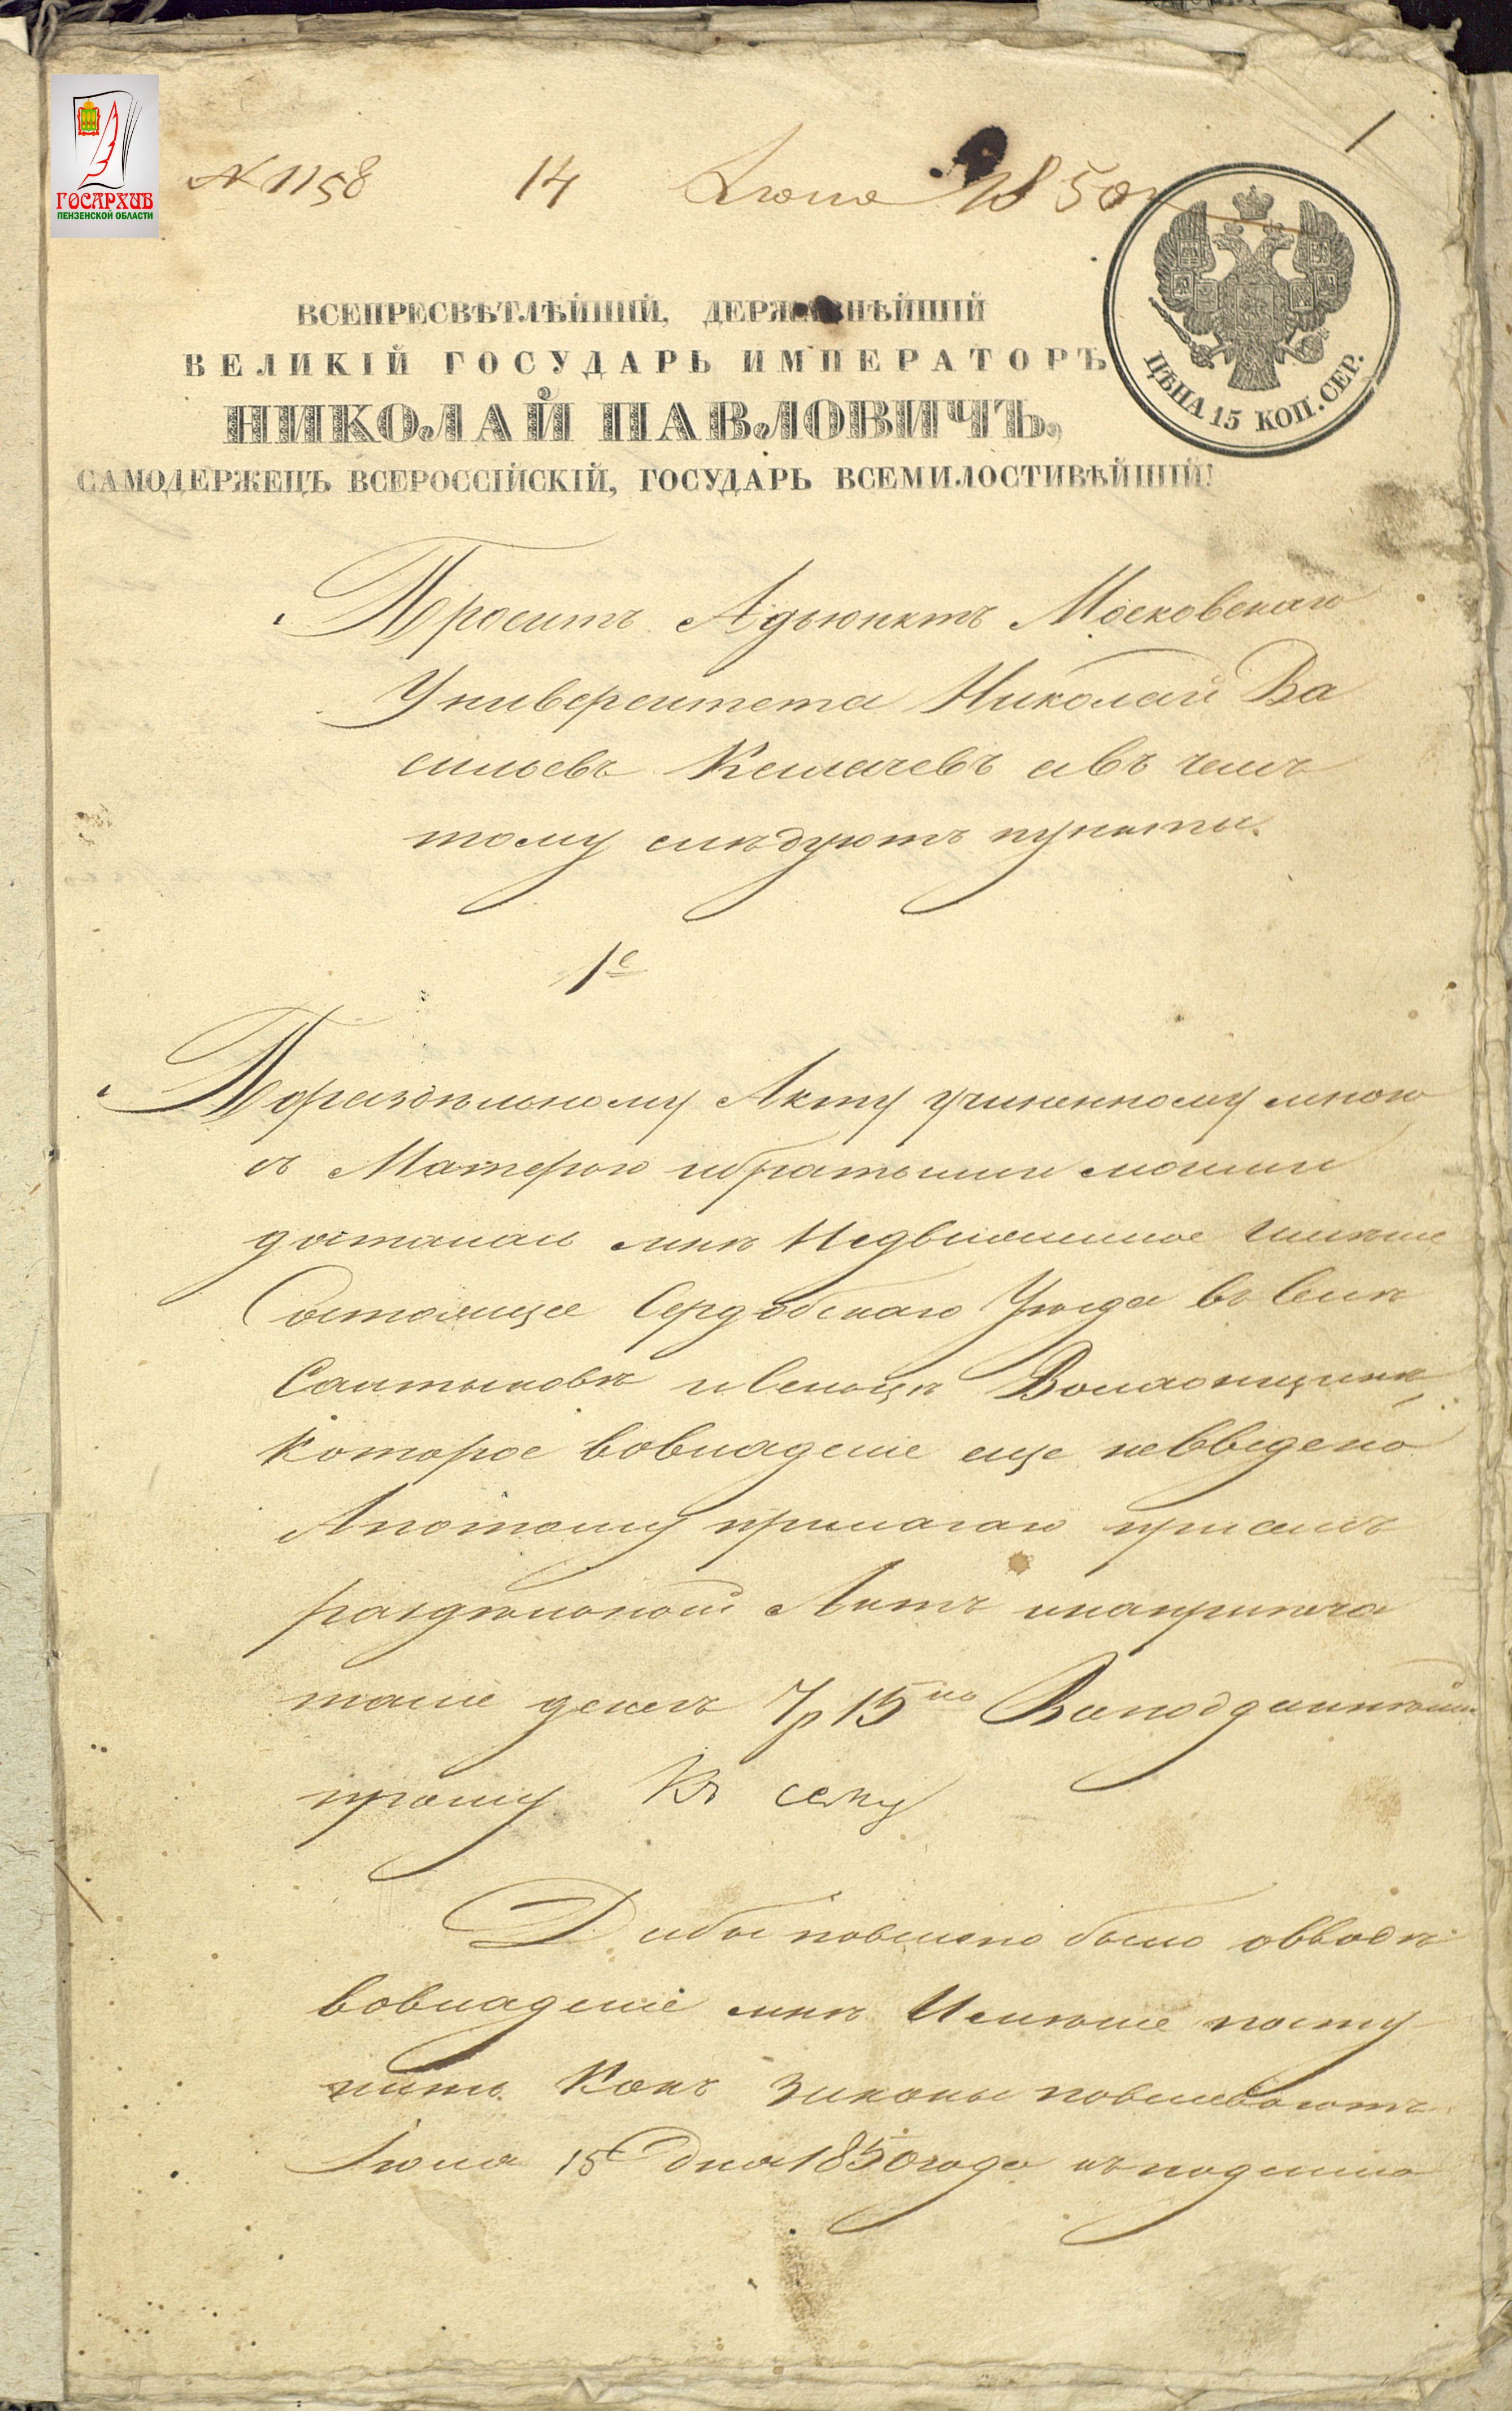 ГОСАРХИВ
ПЕНЗЕНСКОЙ ОБЛАСТИ
1
№ 1158 14 Июля 1850
ВСЕПРЕСВѢТЛѢЙШІЙ, ДЕРЖАВНѢЙШІЙ
ВЕЛИКІЙ ГОСУДАРЬ ИМПЕРАТОРЪ
НИКОЛАЙ ПАВЛОВИЧЪ,
САМОДЕРЖЕЦЪ ВСЕРОССІЙСКІЙ, ГОСУДАРЬ ВСЕМИЛОСТИВѢЙШІЙ!
ЦѢНА 15 КОП. СЕР.
Проситъ Адъюнктъ Московскаго
Университета Николай Ва
сильевъ Калачевъ а въ чемъ
тому слѣдуютъ пункты.
1е
По раздѣльному Акту учиненному мною
съ Матерью и братьями моими
досталось мнѣ Недвижимое Имѣніе
Состоящее Сердобскаго Уѣзда въ Селѣ
Салтыковѣ и Сельцѣ Волхонщинѣ
Которое во владеніе еще не введено
А потому прилагаю при семъ
раздѣльной Актъ и на припеча
таніе денегъ 7р 15 Всеподданнѣйше
прошу Къ сему
Дабы повелѣно было о вводѣ
во владеніе мнѣ Имѣніе посту
пить Какъ законы повелеваютъ
Іюля 15 Дня 1850 года къ подачѣ